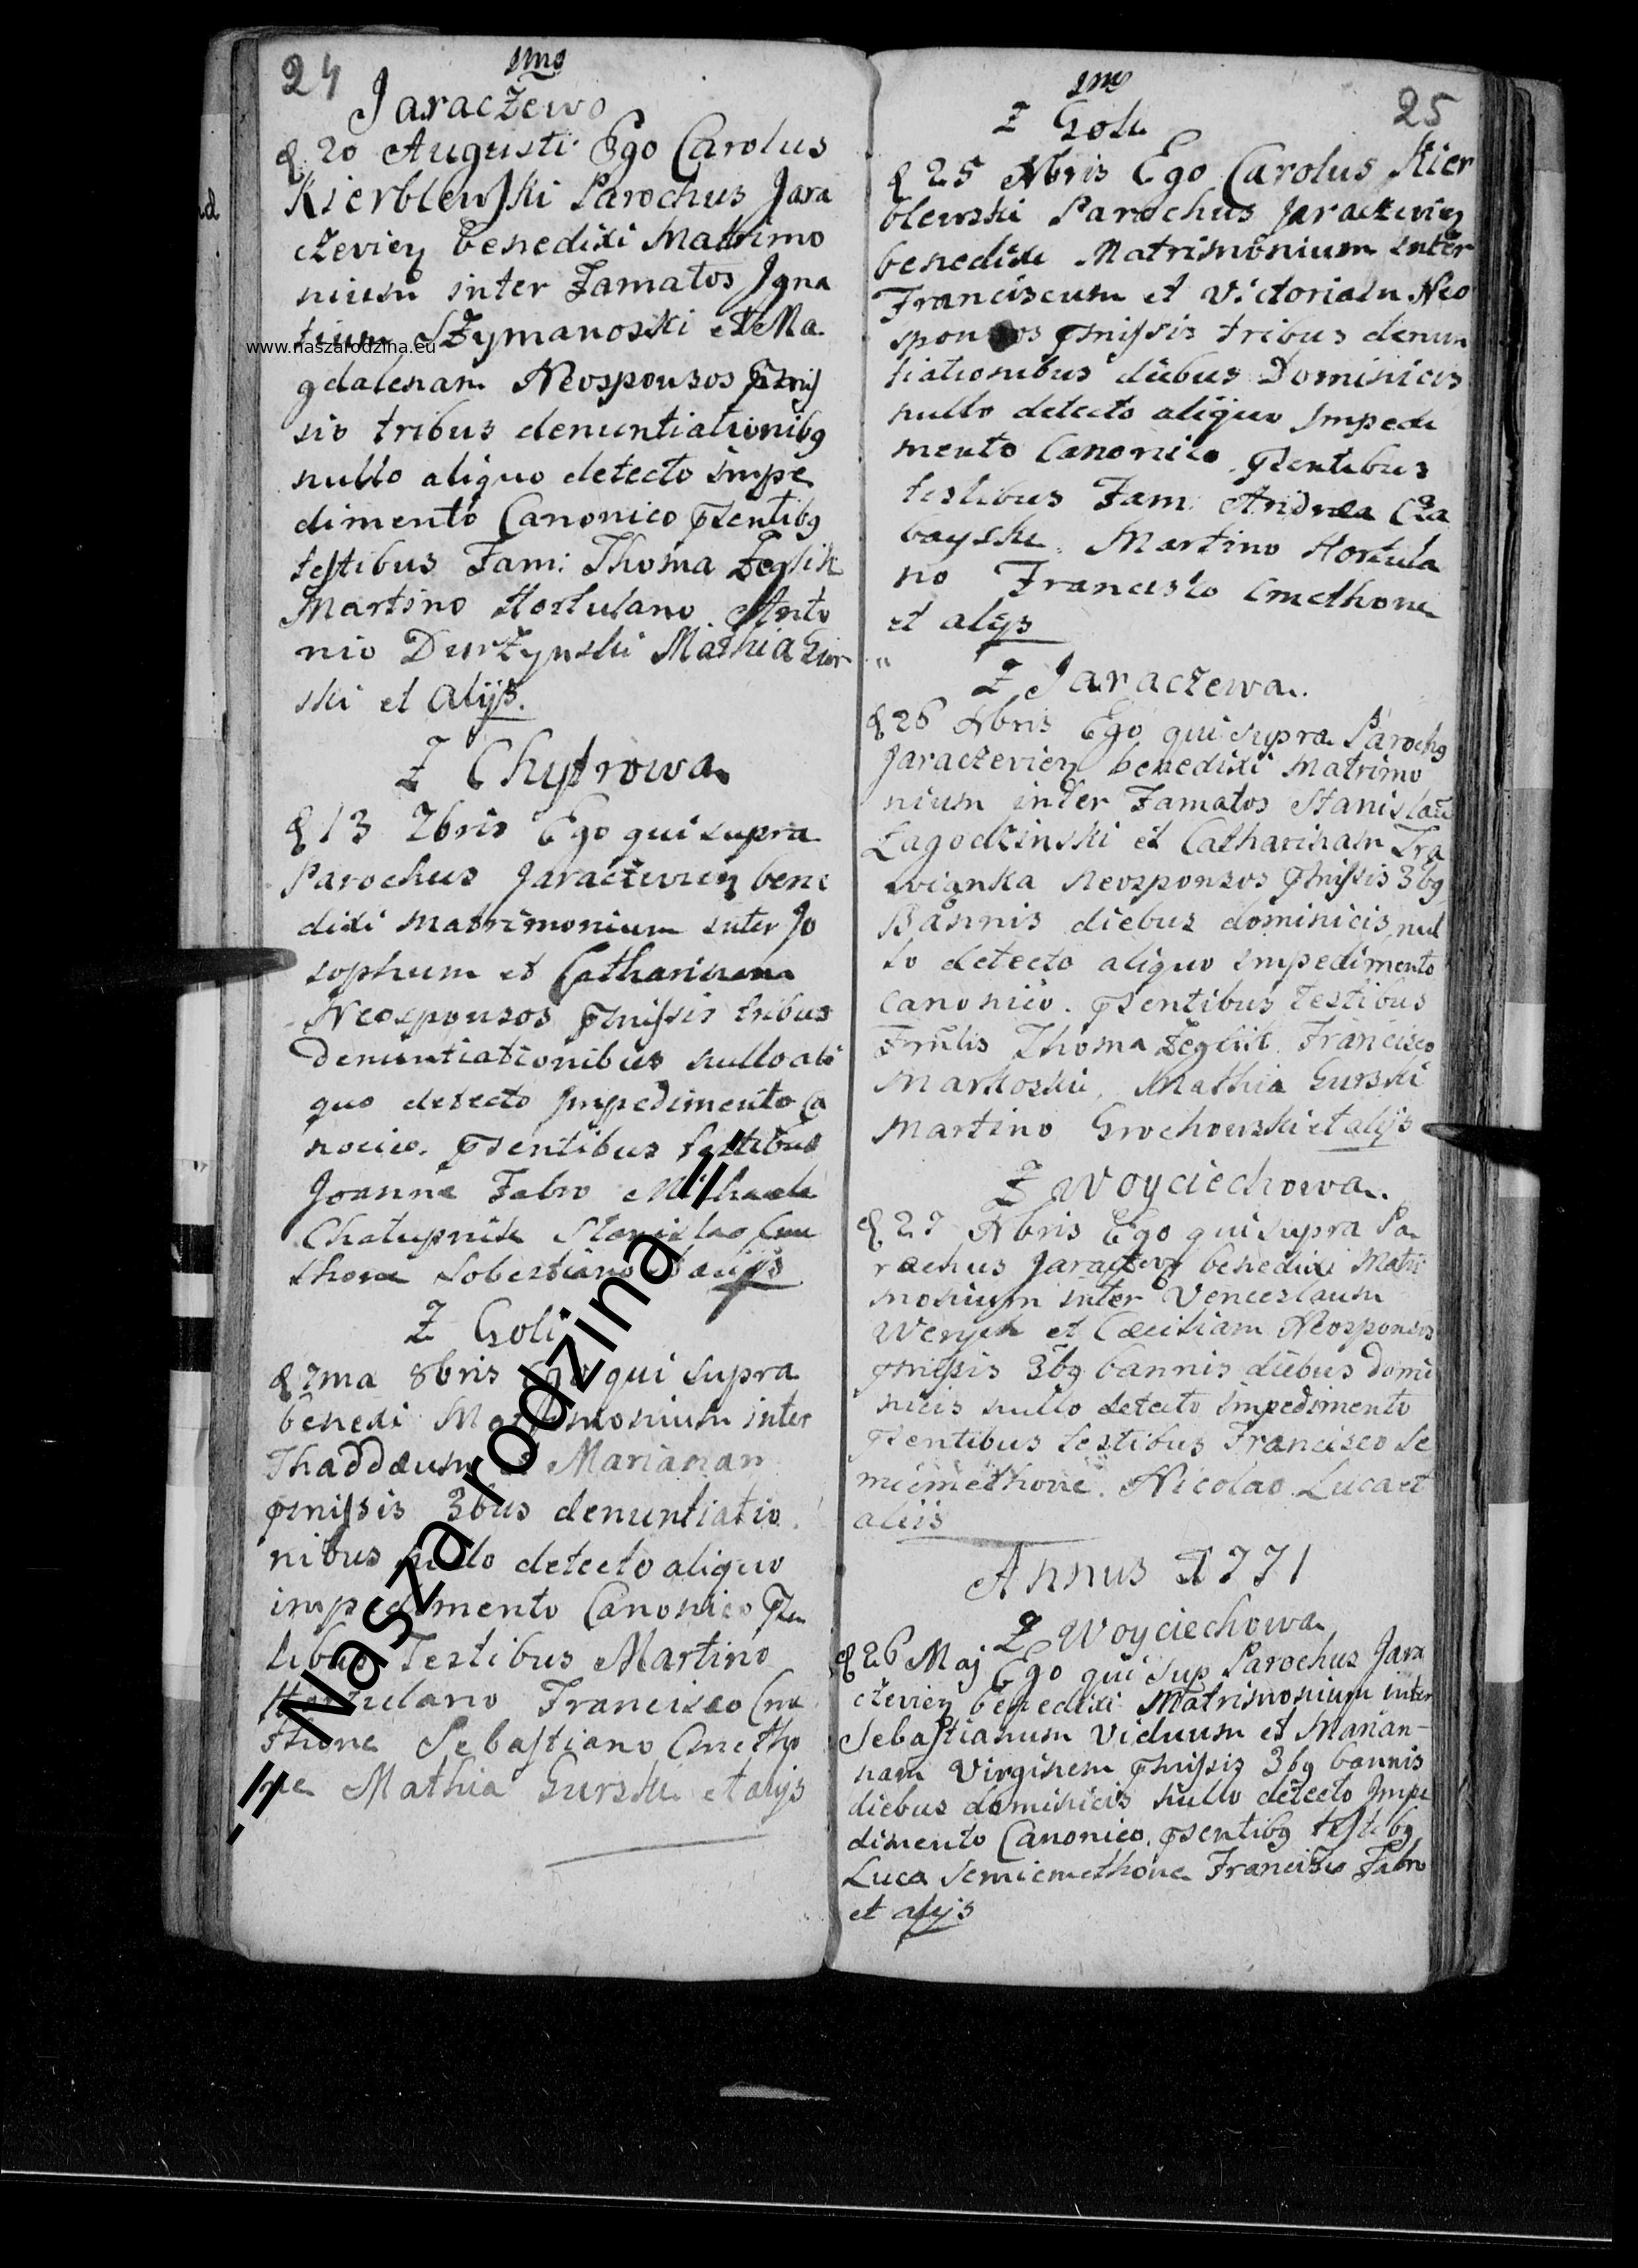 24
Jaraczewo
d 20 Augusti Ego Carolus
Kierblewski Parochus Jara
czevien benedixi Matrimo
nium inter Famatos Igna
tium Szymanoski et Ma
www.naszarodzina.eu
gdalenam Neosponsos
sis tribus denuntiationibq
nullo aliquo detecto impe
dimento Canonico psentibq
testibus Fam: Thoma Zeglik
Martino Hortulano Anto
nio Durzynski Mathia Gur
ski et alijs.
Z Chytrowa
d 13 7bris Ego qui supra
Parochus Jaraczevien bene
dixi Matrimonium inter Jo
sophum et Catharinam
Neosponsos pmissis tribus
denuntiationibus nullo ali
quo detecto Impedimento Ca
nocico. psentibus testibus
Joanne Fabro Michaele
Chalupnik Stanislao Cme
thone Sobestiano et alijs
Z Goli
d 7ma 8bris Ego qui supra
benexi Matrimonium inter
Thaddæum et Marianan
pmissis 3bus denuntiatio
nibus nullo detecto aliquo
impedimento Canonico psen
tibus Testibus Martino
Hortulano Francisco Cme
thone Sebastiano Cmetho
ne Mathia Gurski et alijs
-= Nasza rodzina =
25
Z Goli
d 25 Nbris Ego Carolus Kier
blewski Parochus Jaraczevien
benedixi Matrimonium inter
Franciscum et Victoriam Neo
sponsos pmissis tribus denun
tiationibus diebus Dominicis
nullo detecto aliquo Impedi
mento Canonico psentibus
testibus Fam: Andrea Cza
bayski. Martino Hortula
no Francisco Cmethone
et alijs
Z Jaraczewa.
d 26 Nbris Ego qui supra Parochq
Jaraczevien benedixi Matrimo
nium inter Famatos Stanislau
Lagodzinski et Catharinam Tra
wianka Neosponsos pmissis 3bq
Bannis diebus dominicis nul
lo detecto aliquo impedimento
canonico. psentibus testibus
Thoma Zeglik Francisco
Markoski, Mathia Gurski
Martino Grochowski et alijs
Z Woyciechowa.
d 27 Nbris Ego qui supra Pa
rochus benedixi Matri
monium inter Venceslaum
et Cæciliam Neosponsos
pmissis 3bq bannis diebus Domi
nicis nullo detecto impedimento
psentibus testibus Francisco Se
micmethone. Nicolao Luca et
aliis
Annus 1771
Z Woyciechowa
d 26 Maj Ego qui sup Parochus Jara
czevien benedixi Matrimonium inter
Sebastianum Viduum et Marian-
nam Virginem pmissis 3bq bannis
diebus dominicis nullo detecto Impe
dimento Canonico, psentibq testibq
Luca Semicmethone Francisco Fabro
et alijs